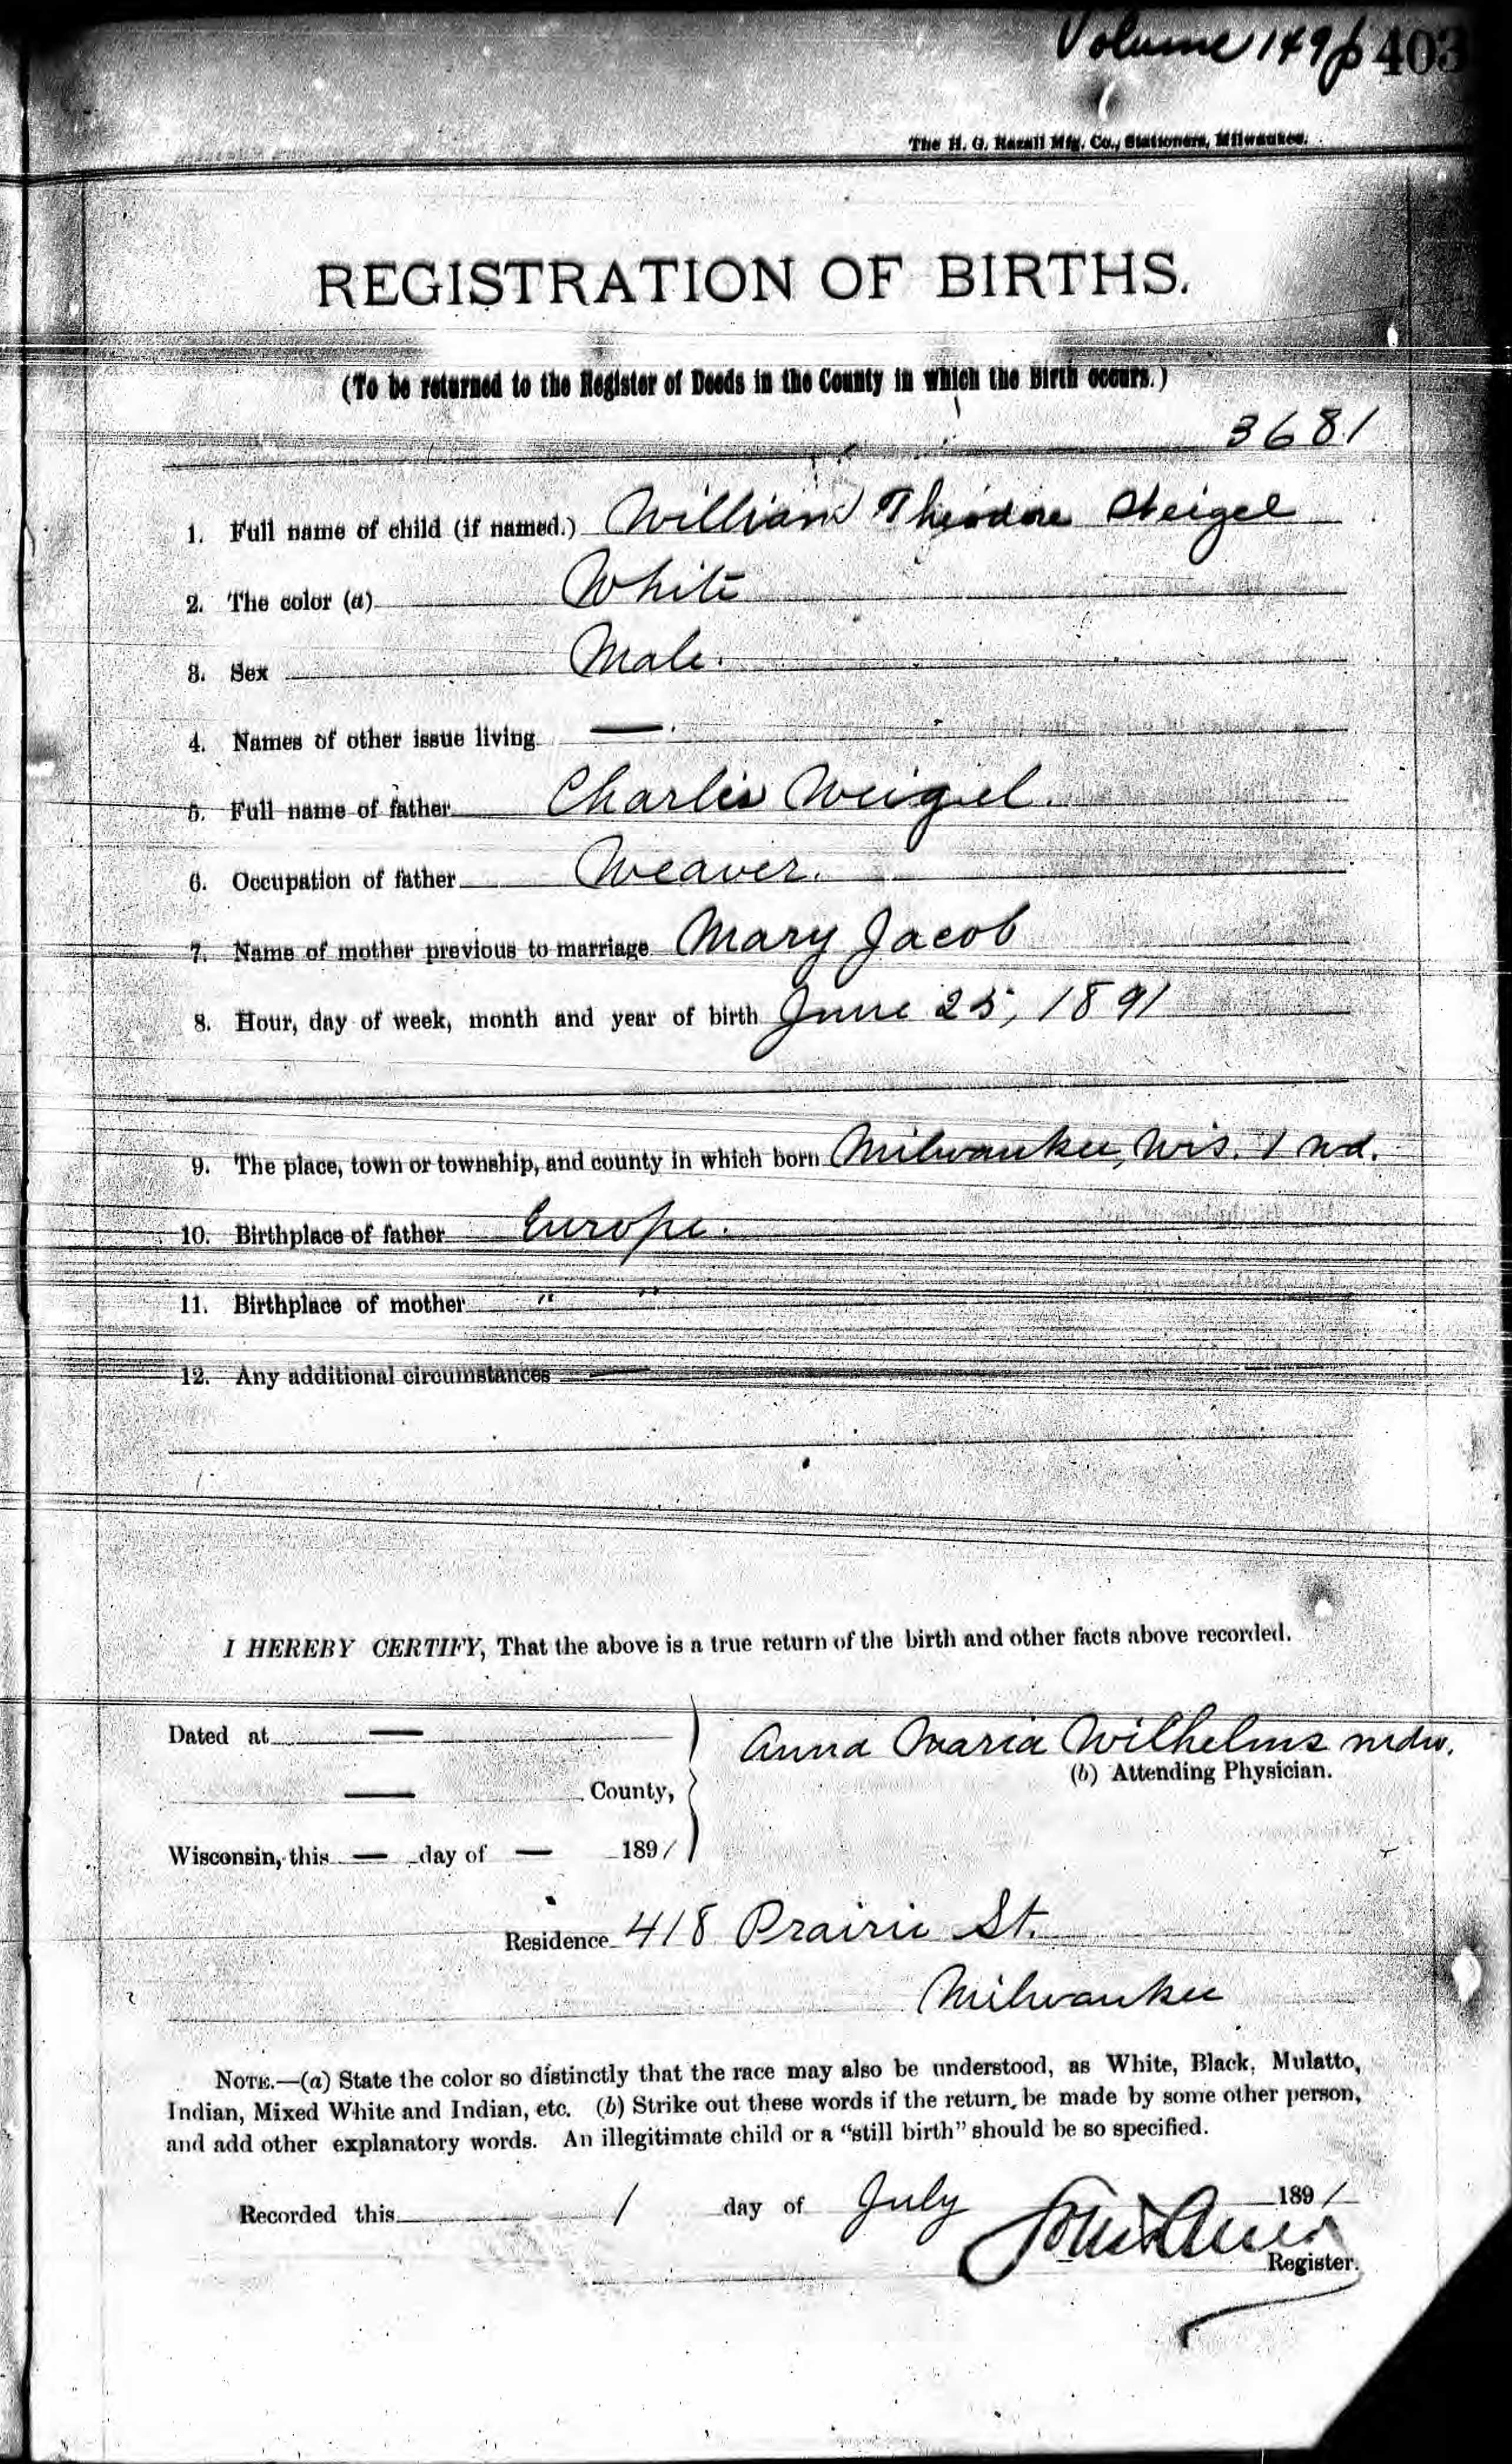 Volume 149 p 403
The H. G. Razall Mfg. Co., Stationers, Milwaukee.
REGISTRATION OF BIRTHS.
(To be returned to the Register of Deeds in the County in which the Birth occurs.)
3681
1. Full name of child (if named.) William Theodore Steigel
2. The color (a) White
3. Sex Male.
4. Names of other issue living —.
5. Full name of father Charles Weigel.
6. Occupation of father Weaver.
7. Name of mother previous to marriage Mary Jacob
8. Hour, day of week, month and year of birth June 25, 1891
9. The place, town or township, and county in which born Milwaukee, Wis. 1 wd.
10. Birthplace of father Europe.
11. Birthplace of mother " "
12. Any additional circumstances —
I HEREBY CERTIFY, That the above is a true return of the birth and other facts above recorded.
Dated at —
Anna Maria Wilhelms mdw.
(b) Attending Physician.
— County,
Wisconsin, this — day of — 1891
Residence 418 Prairie St.
Milwaukee
NOTE.—(a) State the color so distinctly that the race may also be understood, as White, Black, Mulatto,
Indian, Mixed White and Indian, etc. (b) Strike out these words if the return, be made by some other person,
and add other explanatory words. An illegitimate child or a "still birth" should be so specified.
Recorded this 1 day of July 1891
Register.